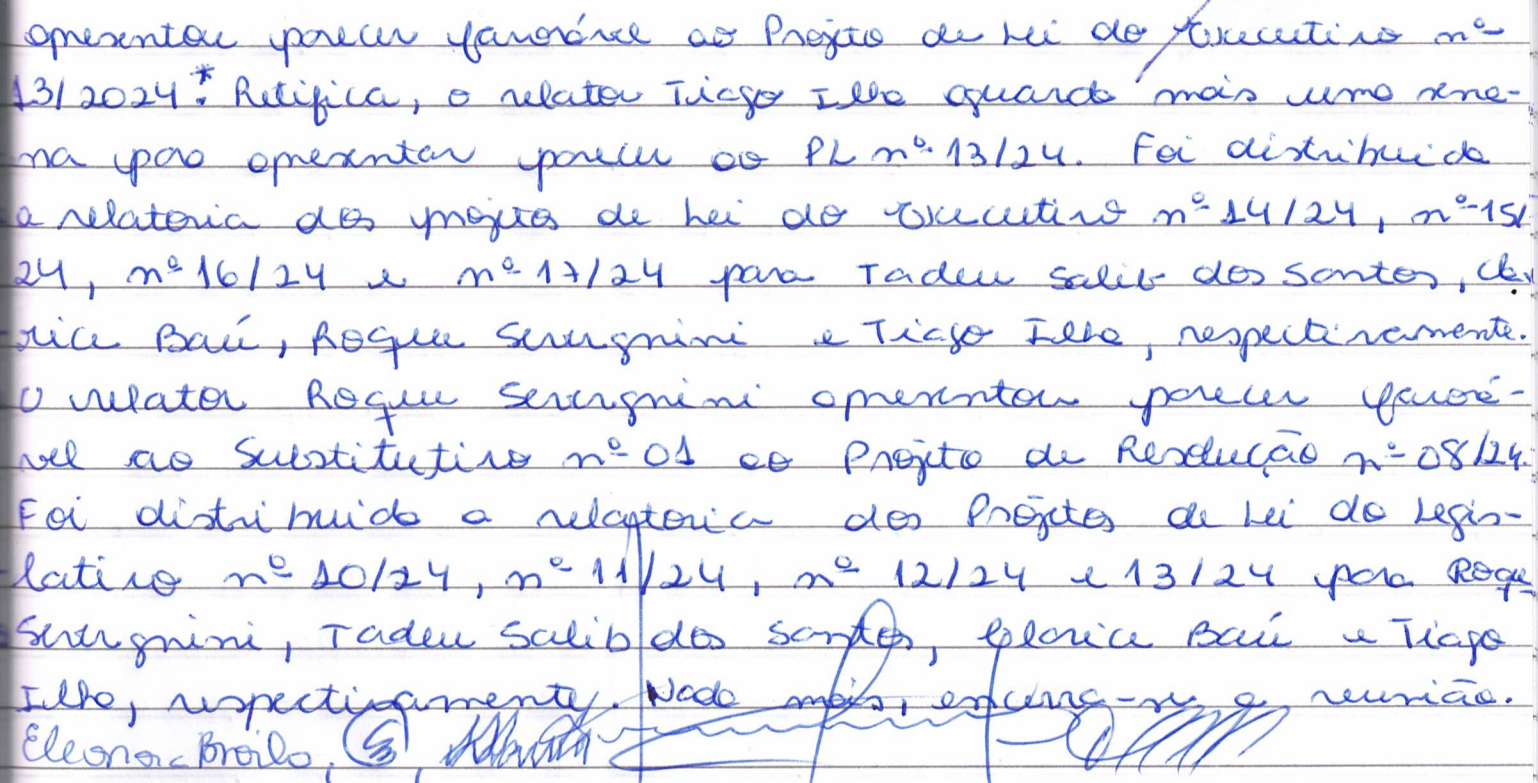 apresentou parecer favorável ao Projeto de Lei do Executivo nº
13/2024.* Retifica, o relator Tiago Ilha aguarda mais uma sema-
na para apresentar parecer ao PL nº 13/24. Foi distribuida
a relatoria dos projetos de Lei do Executivo nº 14/24, nº 15/
24, nº 16/24 e nº 17/24 para Tadeu Salib dos Santos, Cla-
rice Baú, Roque Severgnini e Tiago Ilha, respectivamente.
O relator Roque Severgnini apresentou parecer favorá-
vel ao Substitutivo nº 01 ao Projeto de Resolução nº 08/24.
Foi distribuida a relatoria dos Projetos de Lei do Legis-
lativo nº 10/24, nº 11/24, nº 12/24 e 13/24 para Roque
Severgnini, Tadeu Salib dos Santos, Clarice Baú e Tiago
Ilha, respectivamente. Nada mais, encerra-se a reunião.
Eleonora Broilo,